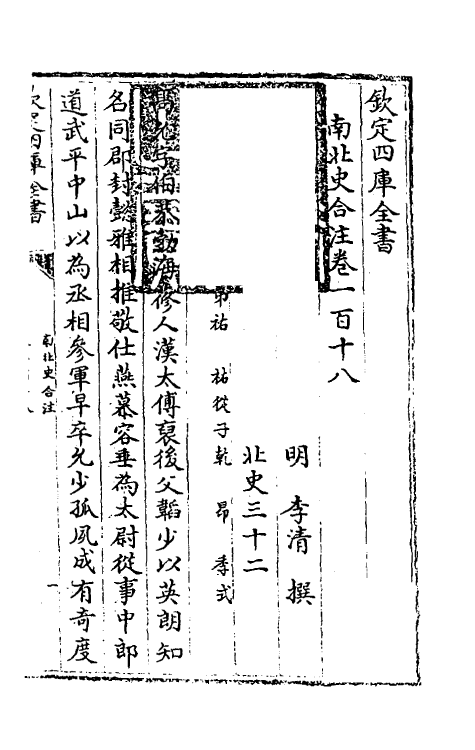 欽定四庫全書
南北史合注卷一百十八
明 李清 撰
北史三十二
弟祐 祐從子乾 昂 季式
高允字伯恭勃海蓨人漢太傅裒後父韜少以英朗知
名同郡封懿雅相推敬仕燕慕容垂為太尉從事中郎
道武平中山以為丞相參軍早卒允少孤夙成有奇度
欽定四庫全書
南北史合注
一